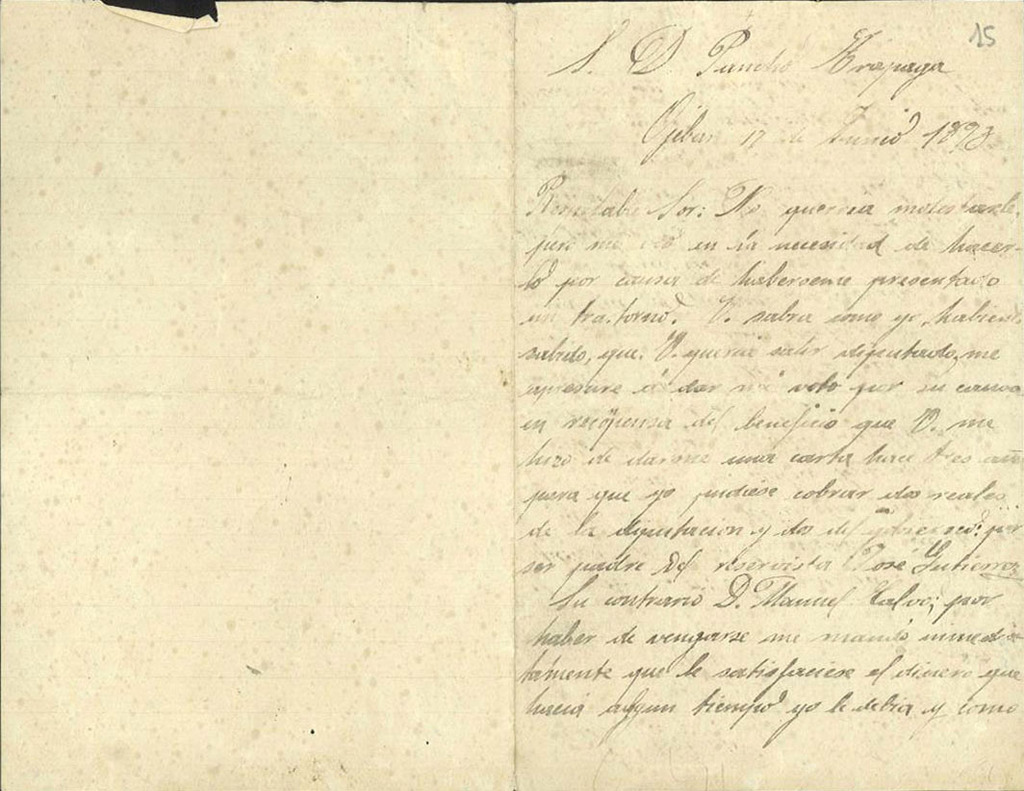 15
S. D. Pancho
Ojebar 17 de Junio 1893
Respetable Sor: No querria molestarle,
pero me veo en la necesidad de hacer-
lo por causa de haberseme presentado
un trastorno. V. sabra como yo, habiendo
sabido, que V. queria salir diputado, me
apresure á dar mi voto por su causa
en recompensa del beneficio que V. me
hizo de darme una carta hace tres años
para que yo pudiese cobrar dos reales
de la diputacion y dos del gobierno: por
ser padre del reservista José Gutierrez
Su contrario D. Manuel Calvo; por
haber de vengarse me mandó inmedia-
tamente que le satisfaciese el dinero que
hacia algun tiempo yo le debia y como